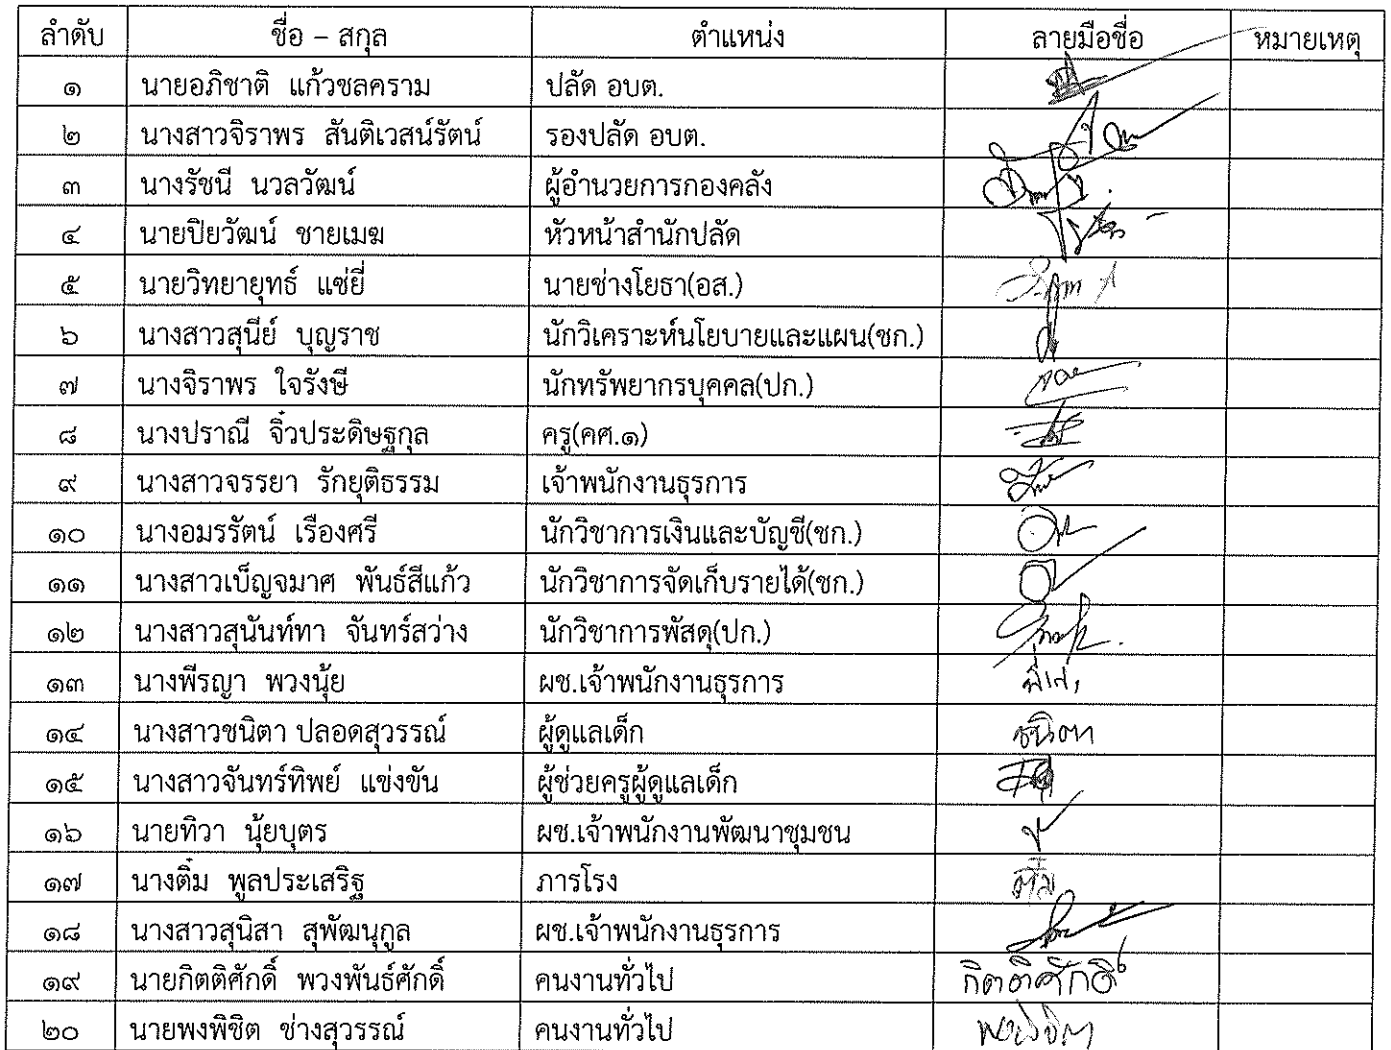 ลำดับ ชื่อ – สกุล ตำแหน่ง ลายมือชื่อ หมายเหตุ
๑ นายอภิชาติ แก้วชลคราม ปลัด อบต.
๒ นางสาวจิราพร สันติเวสน์รัตน์ รองปลัด อบต.
๓ นางรัชนี นวลวัฒน์ ผู้อำนวยการกองคลัง
๔ นายปิยวัฒน์ ชายเมฆ หัวหน้าสำนักปลัด
๕ นายวิทยายุทธ์ แซ่ยี่ นายช่างโยธา(อส.)
๖ นางสาวสุนีย์ บุญราช นักวิเคราะห์นโยบายและแผน(ชก.)
๗ นางจิราพร ใจรังษี นักทรัพยากรบุคคล(ปก.)
๘ นางปราณี จิ๋วประดิษฐกุล ครู(คศ.๑)
๙ นางสาวจรรยา รักยุติธรรม เจ้าพนักงานธุรการ
๑๐ นางอมรรัตน์ เรืองศรี นักวิชาการเงินและบัญชี(ชก.)
๑๑ นางสาวเบ็ญจมาศ พันธ์สีแก้ว นักวิชาการจัดเก็บรายได้(ชก.)
๑๒ นางสาวสุนันท์ทา จันทร์สว่าง นักวิชาการพัสดุ(ปก.)
๑๓ นางพีรญา พวงนุ้ย ผช.เจ้าพนักงานธุรการ
๑๔ นางสาวชนิตา ปลอดสุวรรณ์ ผู้ดูแลเด็ก ชนิตา
๑๕ นางสาวจันทร์ทิพย์ แข่งขัน ผู้ช่วยครูผู้ดูแลเด็ก
๑๖ นายทิวา นุ้ยบุตร ผช.เจ้าพนักงานพัฒนาชุมชน
๑๗ นางติ๋ม พูลประเสริฐ ภารโรง ติ๋ม
๑๘ นางสาวสุนิสา สุพัฒนุกูล ผช.เจ้าพนักงานธุรการ
๑๙ นายกิตติศักดิ์ พวงพันธ์ศักดิ์ คนงานทั่วไป กิตติศักดิ์
๒๐ นายพงพิชิต ช่างสุวรรณ์ คนงานทั่วไป